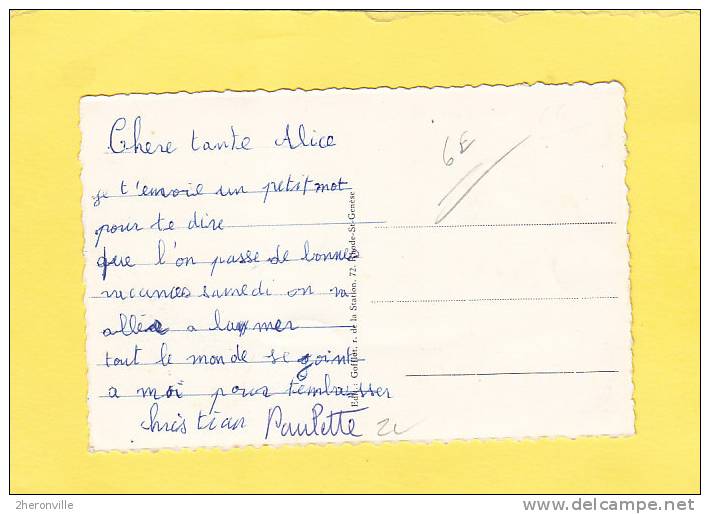 Chere tante Alice
je t'envoie un petit mot
pour te dire
que l'on passe de bonnes
vacances samedi on va
allée a la mer
tout le monde se joint
a moi pour t'embrasser
christian Paulette
6E
Edit. Gofflot, r. de la Station, 72. Rhode-St-Genèse
2heronville
delcampe.net